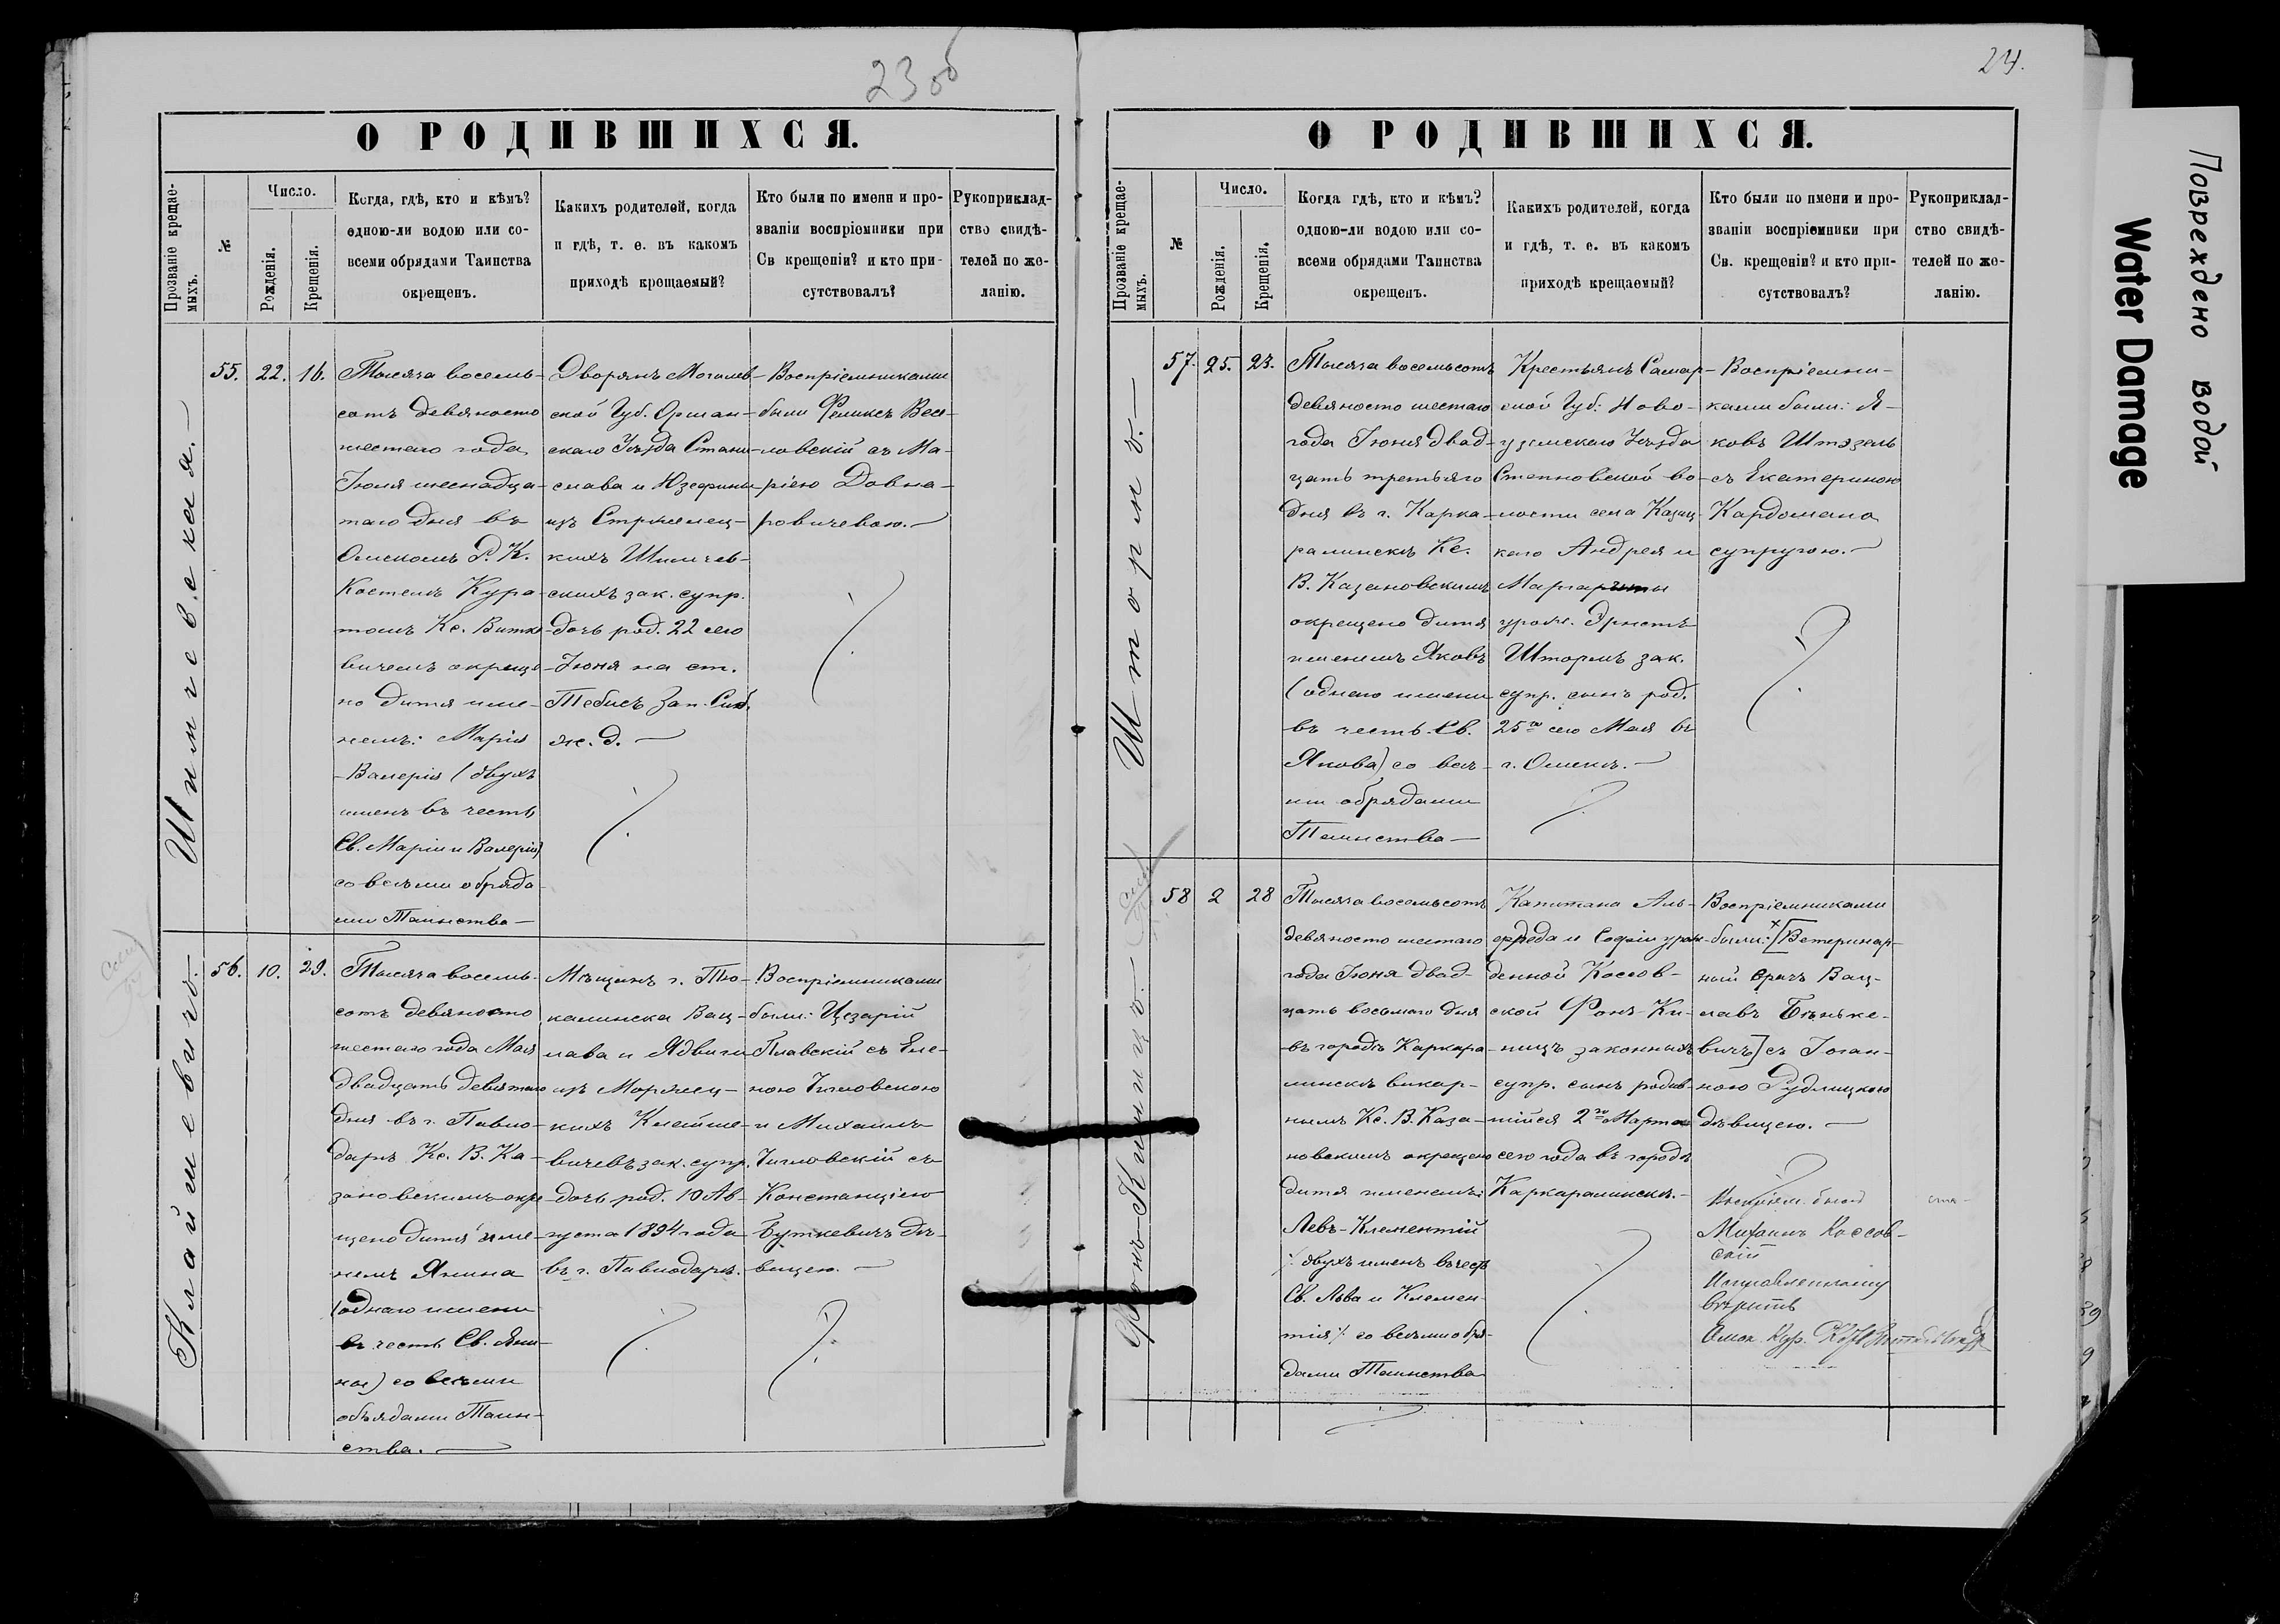 23 об
О РОДИВШИХСЯ.
Прозваніе крещае-
мыхъ.
№
Число.
Рожденія.
Крещенія.
Когда, гдѣ, кто и кѣмъ?
одною-ли водою или со-
всеми обрядами Таинства
окрещенъ.
Какихъ родителей, когда
и гдѣ, т. е. въ какомъ
приходѣ крещаемый?
Кто были по имени и про-
званіи воспріемники при
Св крещеніи? и кто при-
сутствовалъ?
Рукоприклад-
ство свидѣ-
телей по же-
ланію.
55. 22. 16.
Тысяча восемь-
сотъ девяносто
шестаго года
Іюля шеснадца-
таго дня въ
Омскомъ Р. К.
Костелѣ Кура-
томъ Кс. Витко-
вичемъ окреще-
но дитя име-
немъ: Марія
-Валерія (двухъ
именъ въ честь
Св. Маріи и Валеріи)
со всѣми обряда-
ми Таинства —
Дворянъ Могилев-
ской Губ. Оршан-
скаго Уѣзда Стани-
слава и Юзефины
изъ Стржелец-
кихъ
скихъ зак. супр.
дочь род. 22 сего
Іюня на ст.
Тебисъ Зап. Сиб.
ж. д. —
Воспріемниками
были Феликсъ Вес-
ловскій съ Ма-
ріею Довна-
ровичевою. —
Клаймевичъ. —
56. 10. 29.
Тысяча восемь-
сотъ девяносто
шестаго года Мая
двадцать девятаго
дня въ г. Павло-
дарѣ Кс. В. Ка-
зановскимъ окре-
щено дитя име-
немъ Янина
(однаго имени
въ честь Св. Яни-
ны) со всѣми
обрядами Таин-
ства. —
Мѣщанъ г. Тю-
калинска Вац-
лава и Ядвиги
изъ
кихъ Клейме-
вичевъ зак. супр.
дочь род. 10 Ав-
густа 1894 года
въ г. Павлодарѣ.
Воспріемниками
были: Цезарій
Плавскій съ Еле-
ною
и Михаилъ
съ
Констанціею
Буткевичъ дѣ-
вицею. —
24.
О РОДИВШИХСЯ.
Прозваніе крещае-
мыхъ.
№
Число.
Рожденія.
Крещенія.
Когда гдѣ, кто и кѣмъ?
одною-ли водою или со-
всеми обрядами Таинства
окрещенъ.
Какихъ родителей, когда
и гдѣ, т. е. въ какомъ
приходѣ крещаемый?
Кто были по имени и про-
званіи воспріемники при
Св. крещеніи? и кто при-
сутствовалъ?
Рукоприклад-
ство свидѣ-
телей по же-
ланію.
Штормъ. —
57. 25. 23.
Тысяча восемьсотъ
девяносто шестаго
года Іюня двад-
цать третьяго
дня въ г. Карка-
ралинскѣ Кс.
В. Казановскимъ
окрещено дитя
именемъ Яковъ
(однаго имени
въ честь Св.
Якова) со всѣ-
ми обрядами
Таинства —
Крестьянъ Самар-
ской Губ: Ново-
узенскаго Уѣзда
Степновской во-
лости села Казиц-
каго Андрея и
Маргариты
урожд. Эрнстъ
Штормъ зак.
супр. сынъ род.
25го сего Мая въ
г. Омскѣ. —
Воспріемни-
ками были: Я-
ковъ Штэзель
съ Екатериною
Кардомана
супругою. —
Фонъ-Киницъ. —
58 2 28
Тысяча восемьсотъ
девяносто шестаго
года Іюня двад-
цать восьмаго дня
въ городѣ Каркара-
линскѣ викар-
нымъ Кс. В. Каза-
новскимъ окрещено
дитя именемъ:
Левъ-Клементій
/: двухъ именъ въ честь
Св. Льва и Клемен-
тія :/ со всѣми обря-
дами Таинства
Капитана Аль-
фреда и Софіи урож-
денной Коссов-
ской Фонъ-Ки-
ницъ законныхъ
супр. сынъ родив-
шійся 2го Марта
сего года въ городѣ
Каркаралинскѣ. —
Воспріемниками
были: [Ветеринар-
ный врачъ Вац-
лавъ Бѣньке-
вичъ] съ Іоган-
ною Рудлицкою
дѣвицею. —
Воспріем. былъ
Михаилъ Коссов-
скій
Исправленному
вѣрить
Омск. Кур.
Повреждено водой
Water Damage